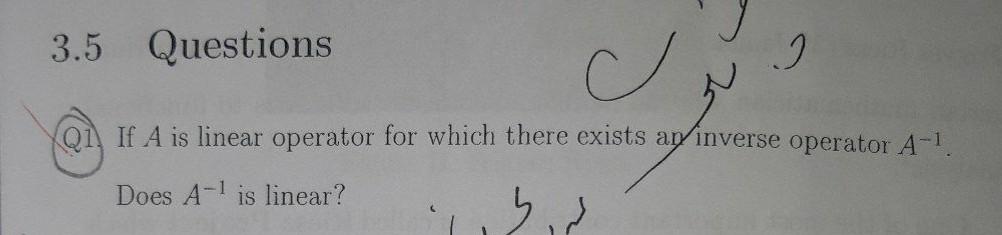 3.5 Questions
Q1 If A is linear operator for which there exists an inverse operator A⁻¹.
Does A⁻¹ is linear?